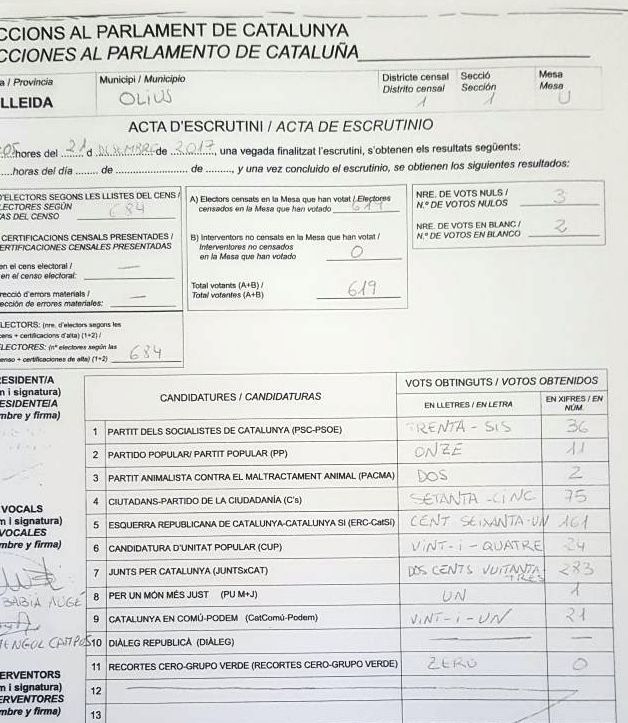 CCIONS AL PARLAMENT DE CATALUNYA
CCIONES AL PARLAMENTO DE CATALUÑA
a / Provincia
LLEIDA
Municipi / Municipio
OLIUS
Districte censal
Distrito censal
1
Secció
Sección
1
Mesa
Mesa
U
ACTA D'ESCRUTINI / ACTA DE ESCRUTINIO
hores del 21 d DESEMBRE de 2017, una vegada finalitzat l'escrutini, s'obtenen els resultats següents:
horas del día ...... de .................... de ........, y una vez concluido el escrutinio, se obtienen los siguientes resultados:
D'ELECTORS SEGONS LES LLISTES DEL CENS /
LECTORES SEGÚN
AS DEL CENSO 684
CERTIFICACIONS CENSALS PRESENTADES /
ERTIFICACIONES CENSALES PRESENTADAS
en el cens electoral /
en el censo electoral: —
recció d'errors materials /
ección de errores materiales: —
LECTORS: (nre. d'electors segons les
cens + certificacions d'alta) (1+2) /
LECTORES: (nº electores según las
enso + certificaciones de alta) (1+2) 684
A) Electors censats en la Mesa que han votat / Electores
censados en la Mesa que han votado 619
B) Interventors no censats en la Mesa que han votat /
Interventores no censados
en la Mesa que han votado 0
Total votants (A+B) /
Total votantes (A+B) 619
NRE. DE VOTS NULS /
N.º DE VOTOS NULOS 3
NRE. DE VOTS EN BLANC /
N.º DE VOTOS EN BLANCO 2
RESIDENT/A
m i signatura)
ESIDENTE/A
mbre y firma)
VOCALS
m i signatura)
VOCALES
mbre y firma)
BABIA AUGÉ
MENGOL CAMPOS
ERVENTORS
m i signatura)
ERVENTORES
mbre y firma)
CANDIDATURES / CANDIDATURAS
VOTS OBTINGUTS / VOTOS OBTENIDOS
EN LLETRES / EN LETRA
EN XIFRES / EN NÚM.
1 PARTIT DELS SOCIALISTES DE CATALUNYA (PSC-PSOE) TRENTA-SIS 36
2 PARTIDO POPULAR/ PARTIT POPULAR (PP) ONZE 11
3 PARTIT ANIMALISTA CONTRA EL MALTRACTAMENT ANIMAL (PACMA) DOS 2
4 CIUTADANS-PARTIDO DE LA CIUDADANÍA (C's) SETANTA-CINC 75
5 ESQUERRA REPUBLICANA DE CATALUNYA-CATALUNYA SI (ERC-CatSí) CENT SEIXANTA-UN 161
6 CANDIDATURA D'UNITAT POPULAR (CUP) VINT-I-QUATRE 24
7 JUNTS PER CATALUNYA (JUNTSxCAT) DOS CENTS VUITANTA TRES 283
8 PER UN MÓN MÉS JUST (PU M+J) UN 1
9 CATALUNYA EN COMÚ-PODEM (CatComú-Podem) VINT-I-UN 21
10 DIÀLEG REPUBLICÀ (DIÀLEG) — —
11 RECORTES CERO-GRUPO VERDE (RECORTES CERO-GRUPO VERDE) ZERO 0
12
13